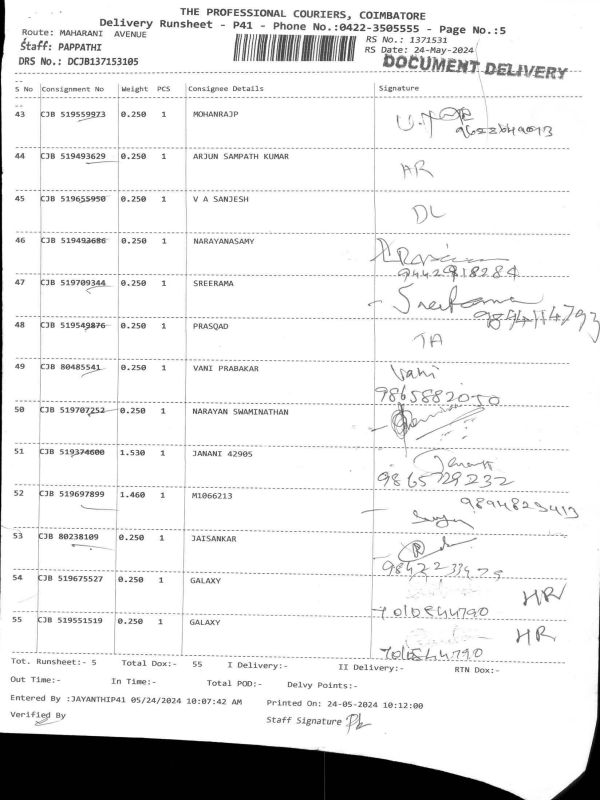 THE PROFESSIONAL COURIERS, COIMBATORE
Delivery Runsheet - P41 - Phone No.:0422-3505555 - Page No.:5
Route: MAHARANI AVENUE
RS No.: 1371531
Staff: PAPPATHI
RS Date: 24-May-2024
DRS No.: DCJB137153105
DOCUMENT DELIVERY
S No Consignment No Weight PCS Consignee Details Signature
43 CJB 519559973 0.250 1 MOHANRAJP
44 CJB 519493629 0.250 1 ARJUN SAMPATH KUMAR AR
45 CJB 519655950 0.250 1 V A SANJESH DL
46 CJB 519493686 0.250 1 NARAYANASAMY
9442918284
47 CJB 519709344 0.250 1 SREERAMA
48 CJB 519549876 0.250 1 PRASQAD TA
49 CJB 80485541 0.250 1 VANI PRABAKAR Vani
9865882050
50 CJB 519707252 0.250 1 NARAYAN SWAMINATHAN
51 CJB 519374600 1.530 1 JANANI 42905
9865729232
52 CJB 519697899 1.460 1 M1066213
53 CJB 80238109 0.250 1 JAISANKAR
54 CJB 519675527 0.250 1 GALAXY HR
7010544790
55 CJB 519551519 0.250 1 GALAXY HR
7010544790
Tot. Runsheet:- 5 Total Dox:- 55 I Delivery:- II Delivery:- RTN Dox:-
Out Time:- In Time:- Total POD:- Delvy Points:-
Entered By :JAYANTHIP41 05/24/2024 10:07:42 AM Printed On: 24-05-2024 10:12:00
Verified By Staff Signature